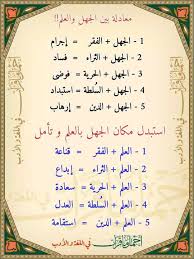 معادلة بين الجهل والعلم!!
1 - الجهل + الفقر = إجرام
2 - الجهل + الثراء = فساد
3 - الجهل + الحرية = فوضى
4 - الجهل + السُلطة = استبداد
5 - الجهل + الدين = إرهاب
استبدل مكان الجهل بالعلم و تأمل
1 - العلم + الفقر = قناعة
2 - العلم + الثراء = إبداع
3 - العلم + الحرية = سعادة
4 - العلم + السُلطة = العدل
5 - العلم + الدين = استقامة
في اللغة والأدب